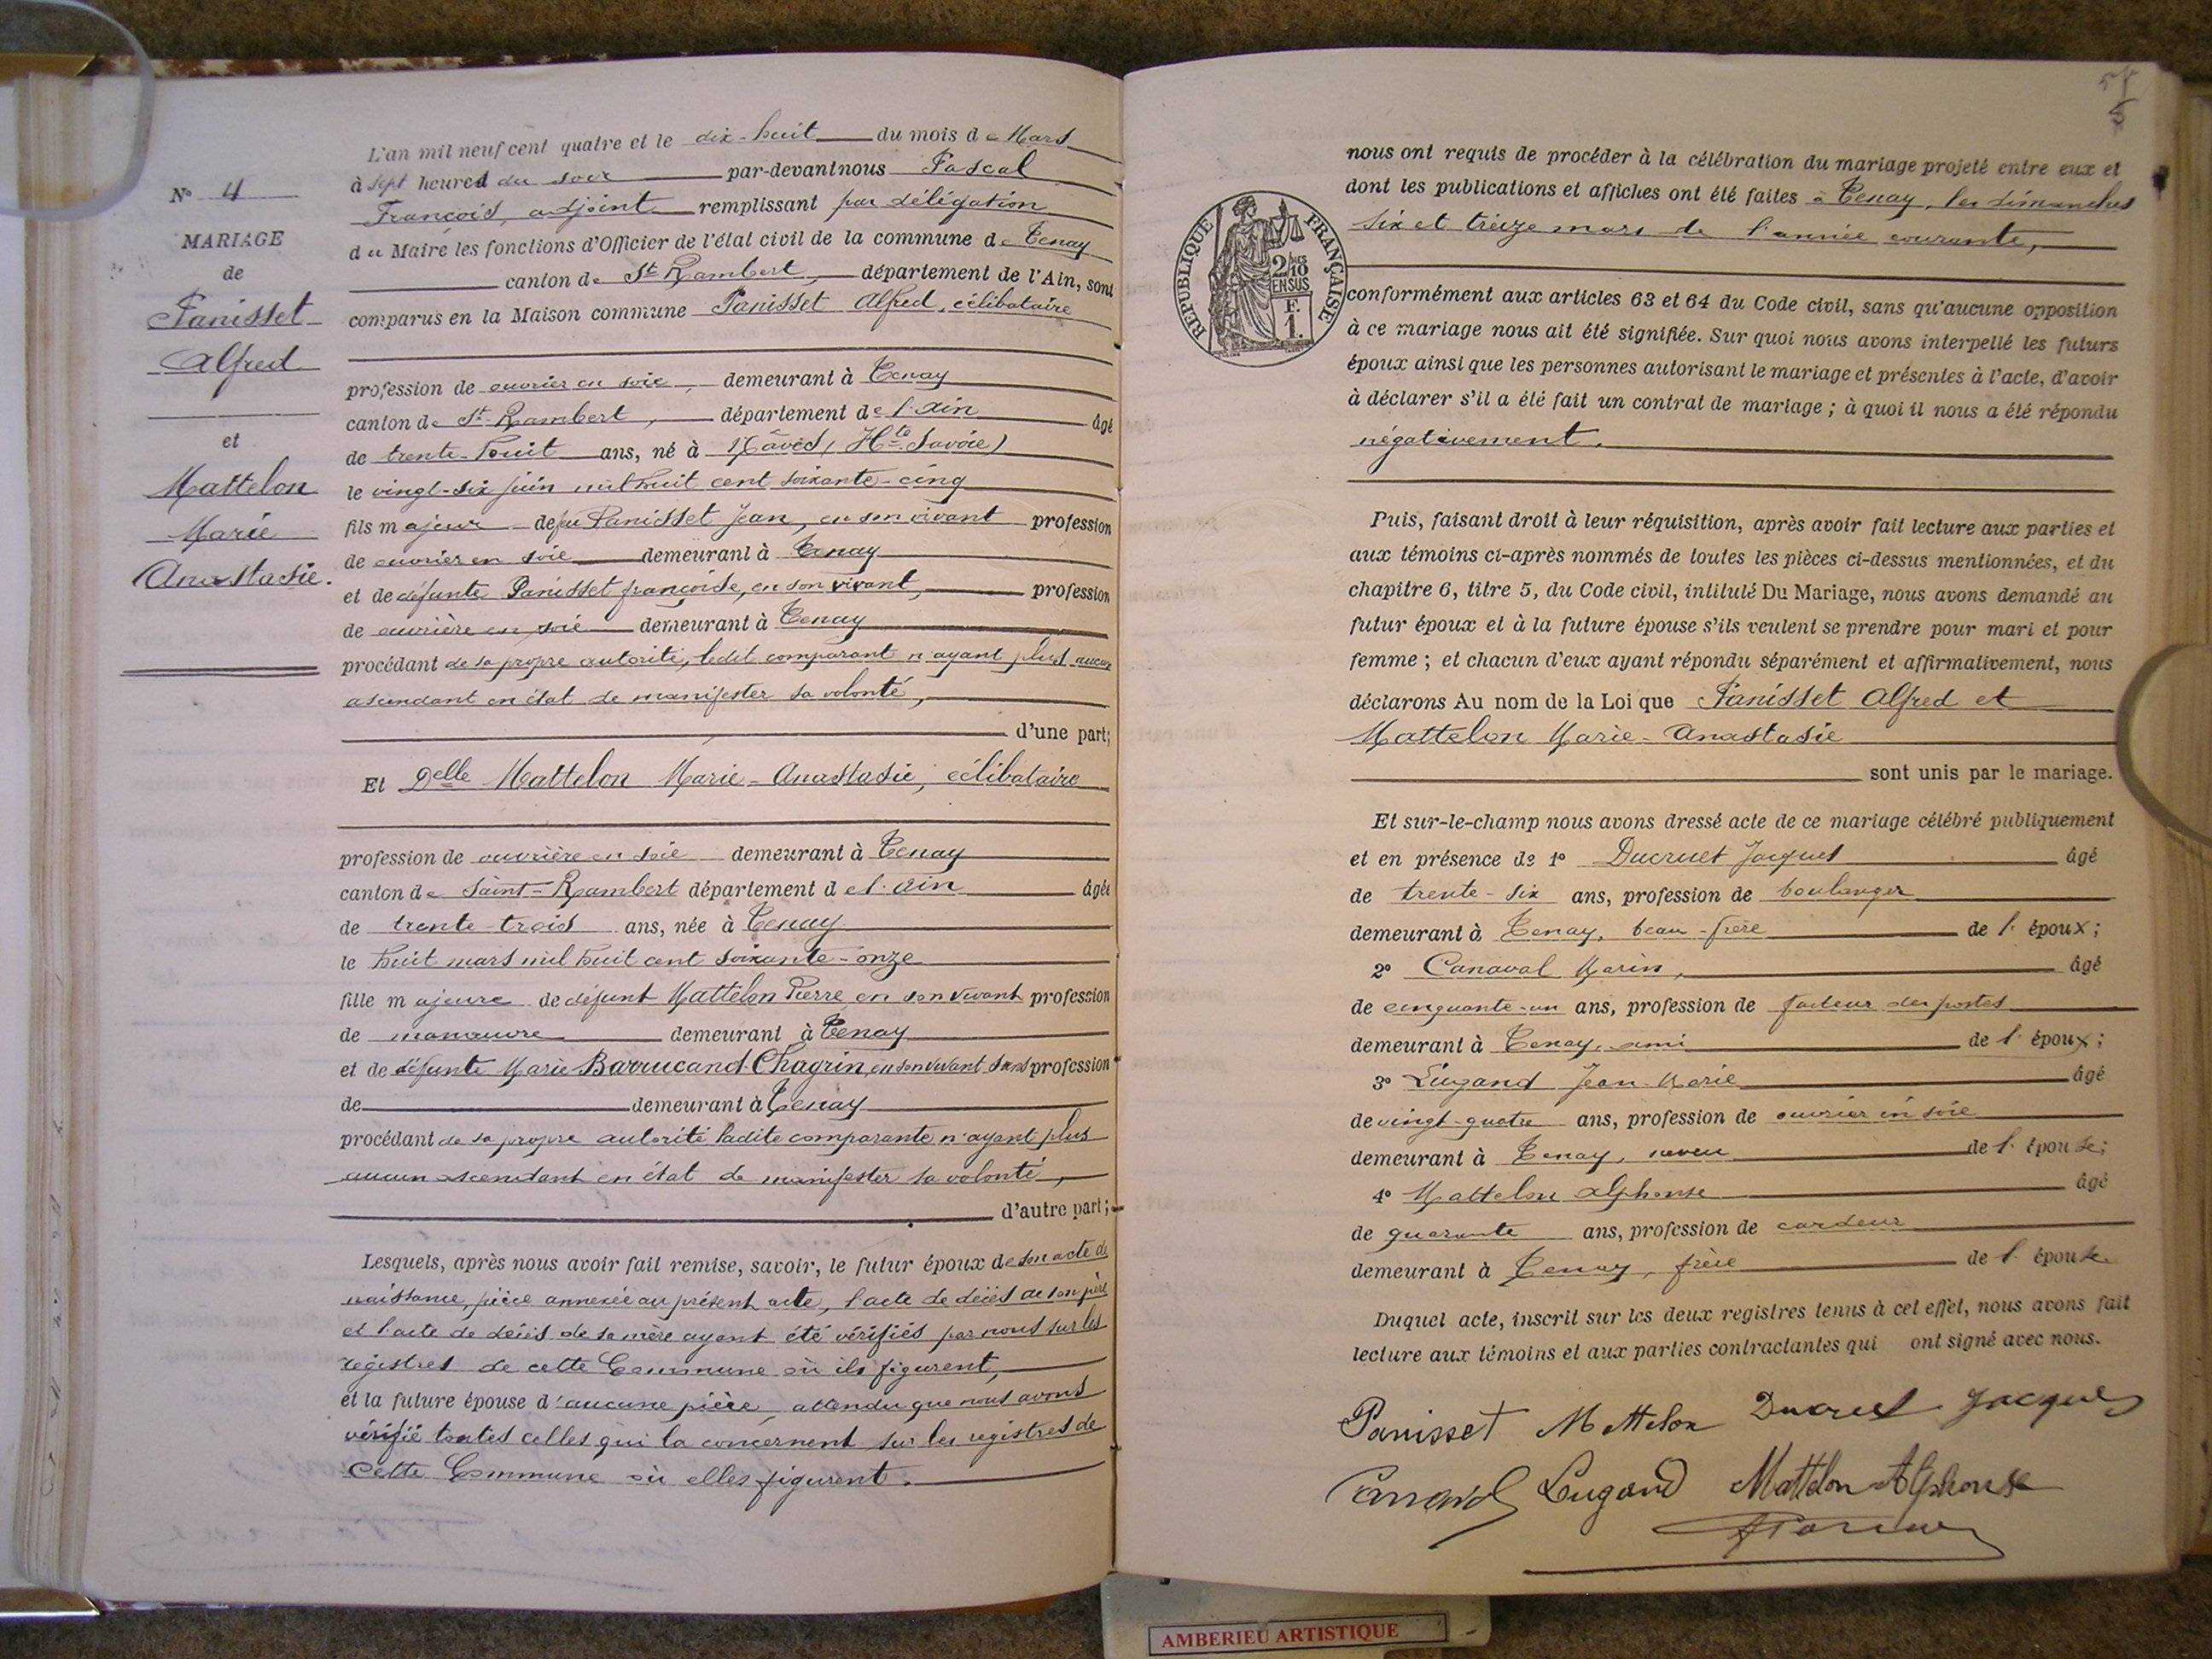 N° 4
MARIAGE
de
Panisset
Alfred
et
Mattelon
Marie
Anastasie.
L'an mil neuf cent quatre et le dix-huit du mois de Mars
à sept heures du soir par-devant nous Pascal
François, adjoint remplissant par délégation
du Maire les fonctions d'Officier de l'état civil de la commune de Tenay
canton de St Rambert, département de l'Ain, sont
comparus en la Maison commune Panisset Alfred, célibataire
profession de ouvrier en soie, demeurant à Tenay
canton de St-Rambert, département de l'Ain âgé
de trente-huit ans, né à (Hte Savoie)
le vingt-six juin mil huit cent soixante-cinq
fils majeur de feu Panisset Jean, en son vivant profession
de ouvrier en soie demeurant à Tenay
et de défunte Panisset françoise, en son vivant, profession
de ouvrière en soie demeurant à Tenay
procédant de sa propre autorité, ledit comparant n'ayant plus aucun
ascendant en état de manifester sa volonté,
d'une part;
Et Delle Mattelon Marie-Anastasie, célibataire
profession de ouvrière en soie demeurant à Tenay
canton de Saint-Rambert département de l'Ain âgée
de trente-trois ans, née à Tenay
le huit mars mil huit cent soixante-onze
fille majeure de défunt Mattelon Pierre en son vivant profession
de manœuvre demeurant à Tenay
et de défunte Marie Barrucand-Chagrin, en son vivant sans profession
de demeurant à Tenay
procédant de sa propre autorité ladite comparante n'ayant plus
aucun ascendant en état de manifester sa volonté,
d'autre part;
Lesquels, après nous avoir fait remise, savoir, le futur époux de son acte de
naissance, pièce annexée au présent acte, l'acte de décès de son père
et l'acte de décès de sa mère ayant été vérifiés par nous sur les
registres de cette Commune où ils figurent,
et la future épouse d'aucune pièce, attendu que nous avons
vérifié toutes celles qui la concernent sur les registres de
cette Commune où elles figurent.
5
RÉPUBLIQUE FRANÇAISE
2/10
EN SUS
F.
1.
nous ont requis de procéder à la célébration du mariage projeté entre eux et
dont les publications et affiches ont été faites à Tenay, les dimanches
six et treize mars de l'année courante,
conformément aux articles 63 et 64 du Code civil, sans qu'aucune opposition
à ce mariage nous ait été signifiée. Sur quoi nous avons interpellé les futurs
époux ainsi que les personnes autorisant le mariage et présentes à l'acte, d'avoir
à déclarer s'il a été fait un contrat de mariage ; à quoi il nous a été répondu
négativement.
Puis, faisant droit à leur réquisition, après avoir fait lecture aux parties et
aux témoins ci-après nommés de toutes les pièces ci-dessus mentionnées, et du
chapitre 6, titre 5, du Code civil, intitulé Du Mariage, nous avons demandé au
futur époux et à la future épouse s'ils veulent se prendre pour mari et pour
femme ; et chacun d'eux ayant répondu séparément et affirmativement, nous
déclarons Au nom de la Loi que Panisset Alfred et
Mattelon Marie-Anastasie
sont unis par le mariage.
Et sur-le-champ nous avons dressé acte de ce mariage célébré publiquement
et en présence de 1° Ducruet Jacques âgé
de trente-six ans, profession de boulanger
demeurant à Tenay, beau-frère de l'époux;
2° Canaval Marin, âgé
de cinquante-un ans, profession de facteur des postes
demeurant à Tenay, ami de l'époux;
3° Lugand Jean-Marie âgé
de vingt-quatre ans, profession de ouvrier en soie
demeurant à Tenay, neveu de l'épouse;
4° Mattelon Alphonse âgé
de quarante ans, profession de cardeur
demeurant à Tenay, frère de l'épouse.
Duquel acte, inscrit sur les deux registres tenus à cet effet, nous avons fait
lecture aux témoins et aux parties contractantes qui ont signé avec nous.
Panisset Mattelon Ducruet Jacques
Lugand Mattelon Alphonse
AMBERIEU ARTISTIQUE